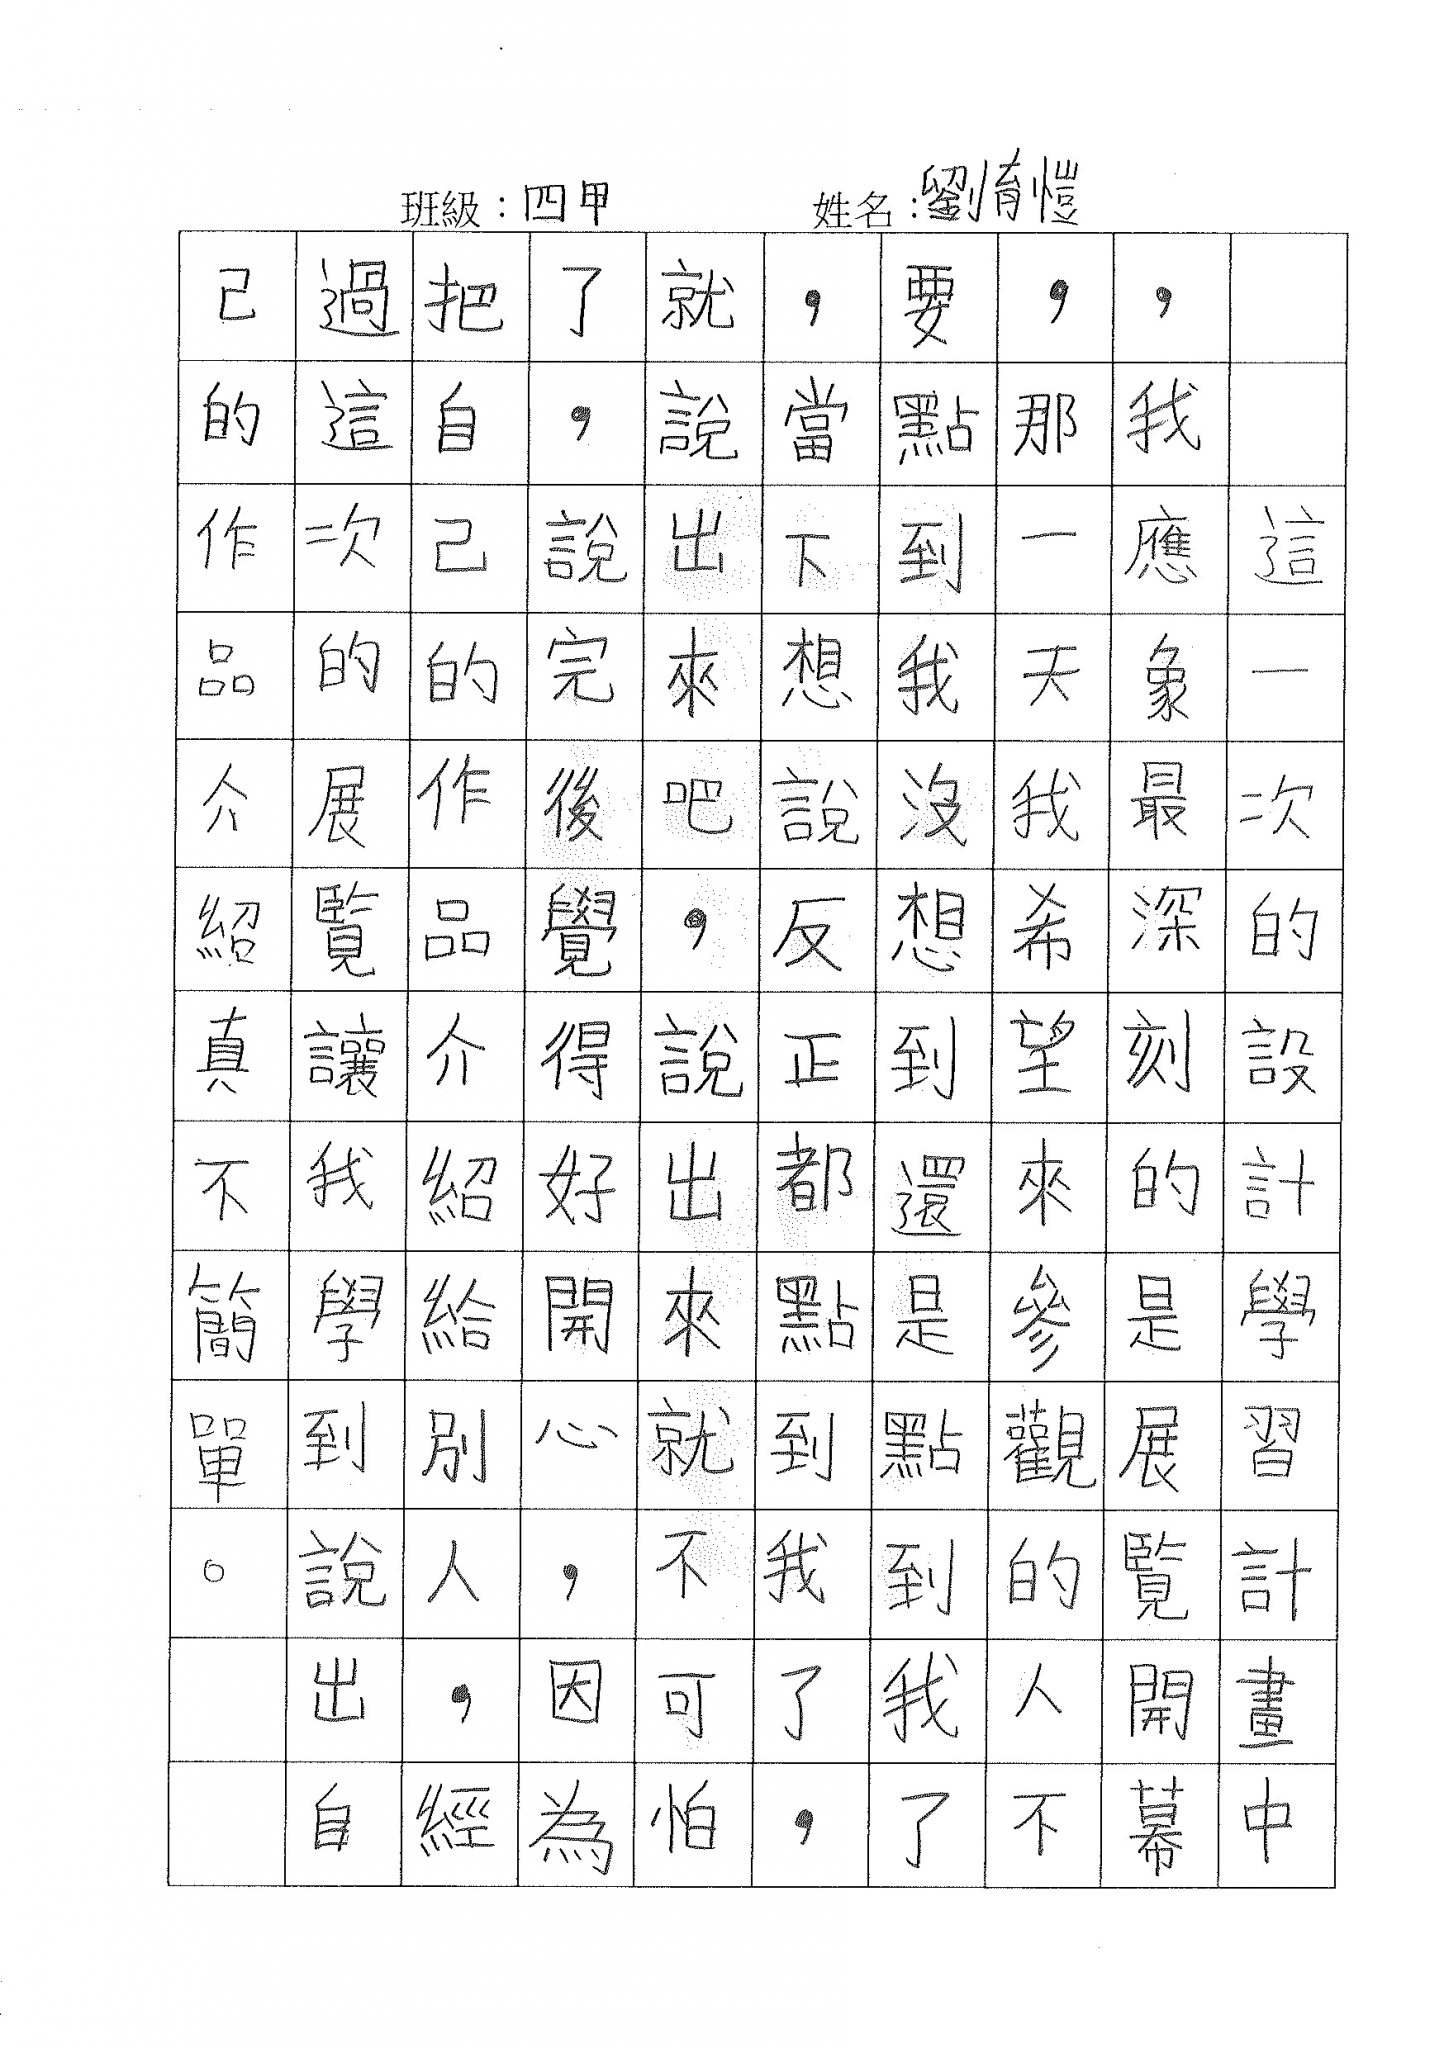 班級：四甲 姓名：劉育愷
這一次的設計學習計畫中
，我應象最深刻的是展覽開幕
，那一天我希望來參觀的人不
要點到我沒想到還是點到我了
，當下想說反正都點到我了，
就說出來吧，說出來就不可怕
了，說完後覺得好開心，因為
把自己的作品介紹給別人，經
過這次的展覽讓我學到說出自
己的作品介紹真不簡單。